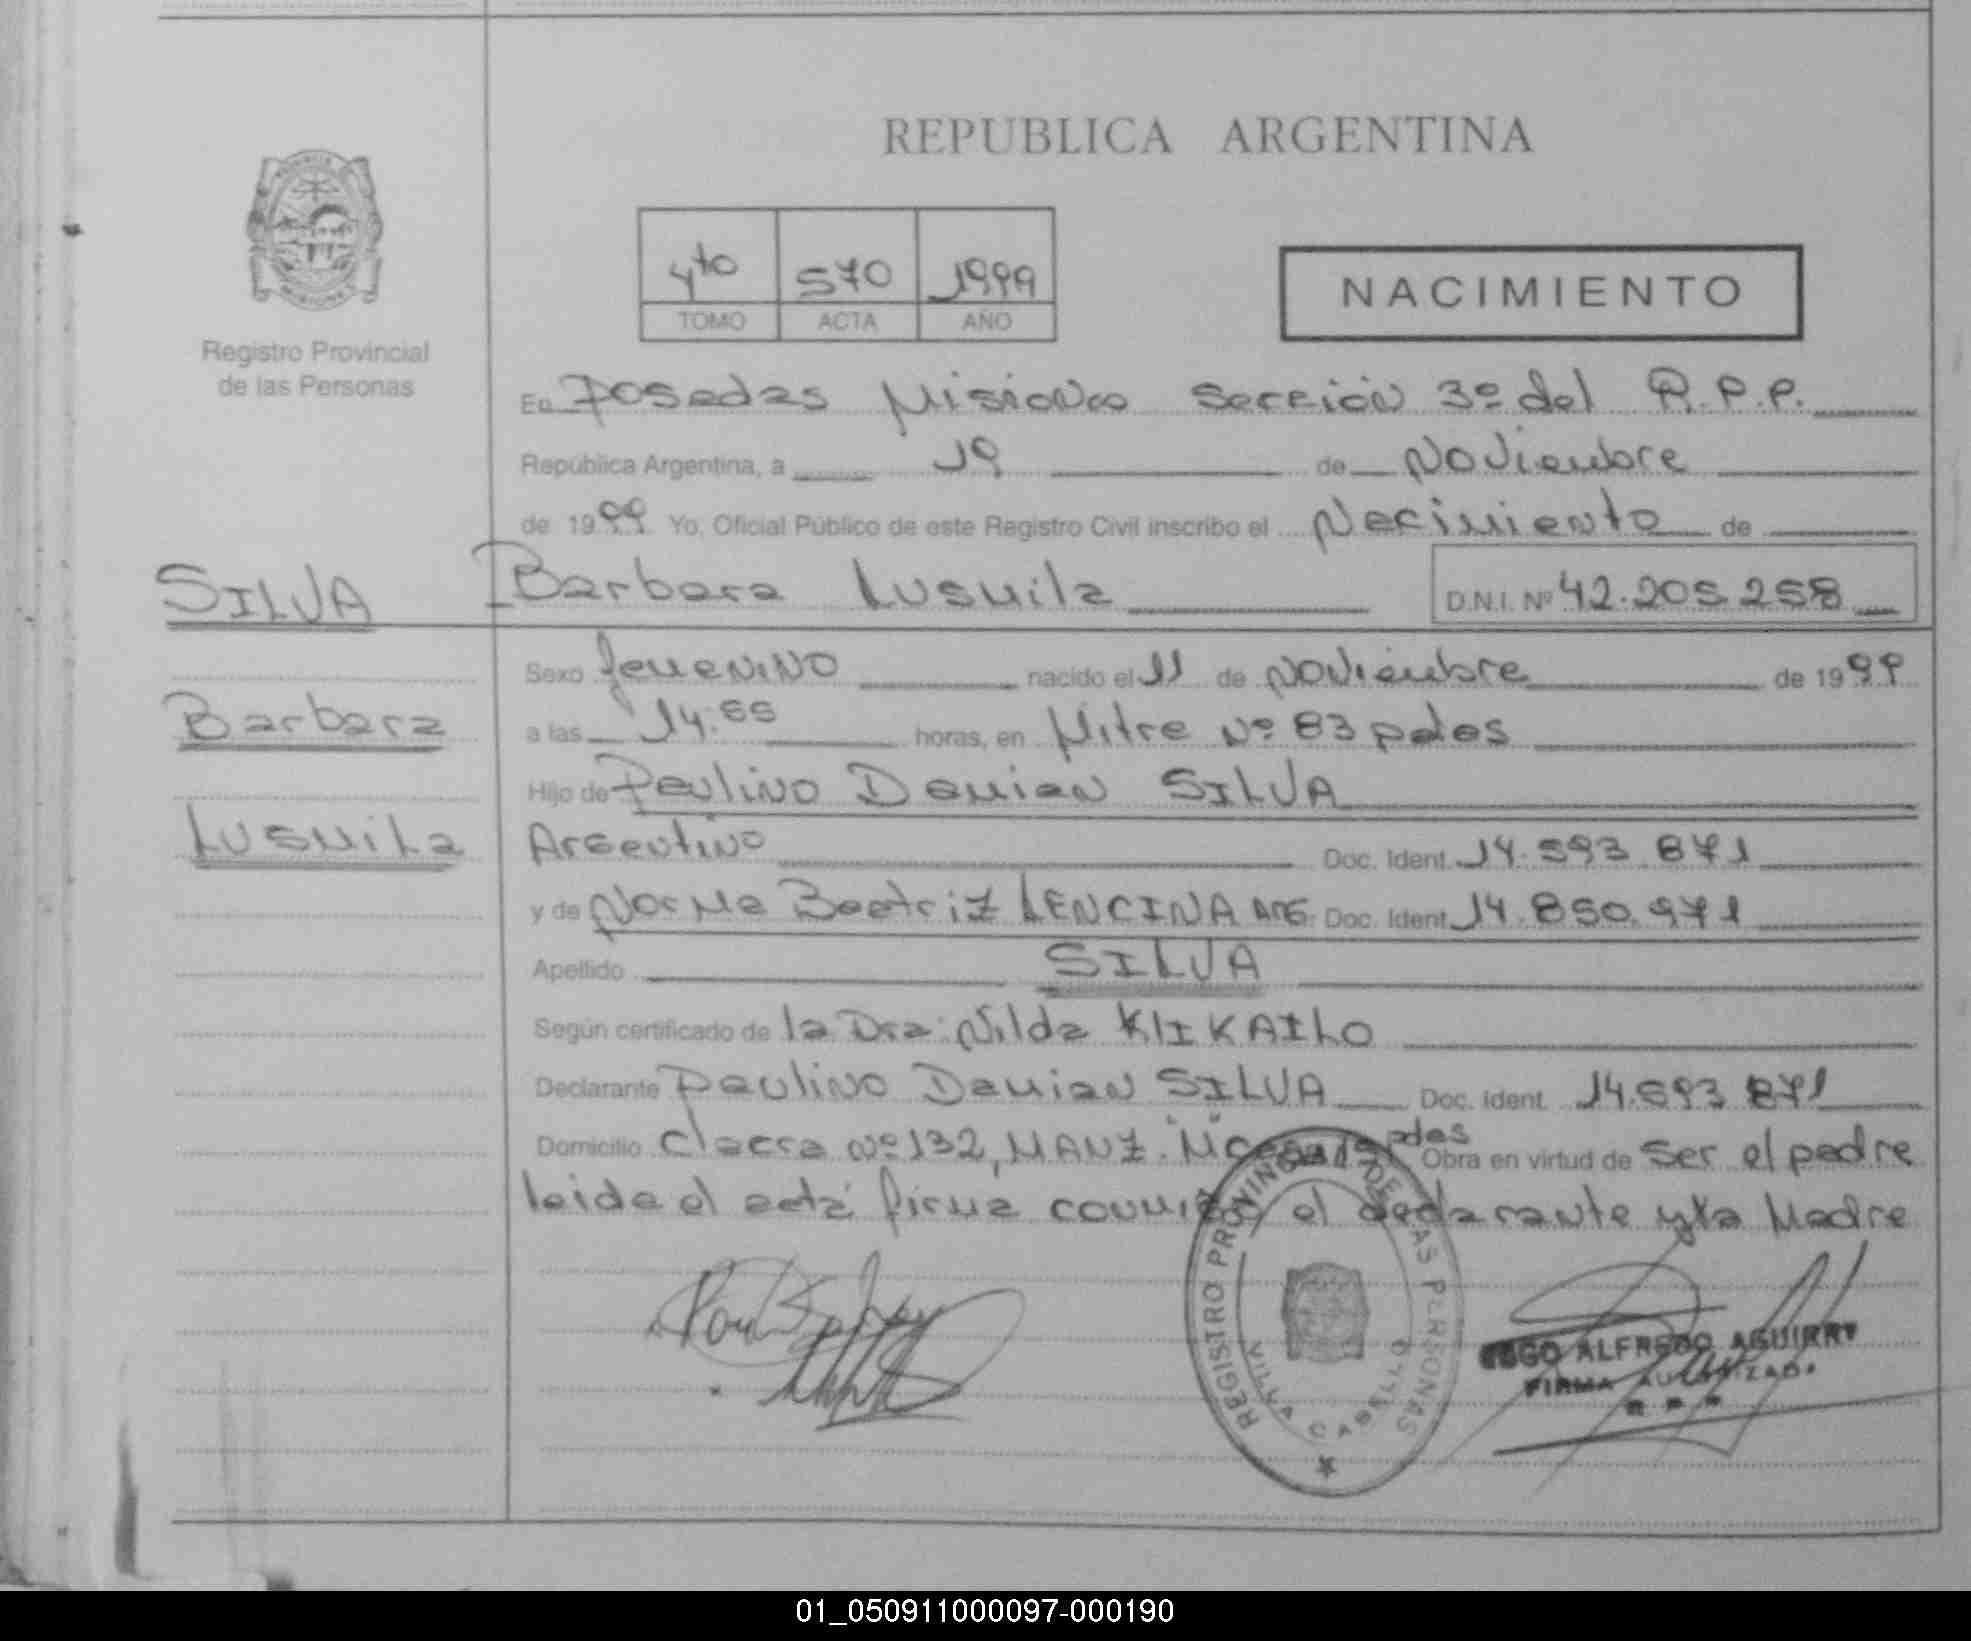 REPUBLICA ARGENTINA
Registro Provincial
de las Personas
4to 570 1999
TOMO ACTA AÑO
NACIMIENTO
En Posadas Misiones Sección 3º del R.P.P.
República Argentina, a 19 de Noviembre
de 1999 Yo, Oficial Público de este Registro Civil inscribo el Nacimiento de
SILVA
Barbara Lusmila D.N.I. Nº 42.205.258
Barbara
Lusmila
Sexo femenino nacido el 11 de Noviembre de 1999
a las 14:55 horas, en Mitre Nº 83 pdas
Hijo de Paulino Damian SILVA
Argentino Doc. Ident. 14.593.871
y de Norma Beatriz LENCINA ARG. Doc. Ident. 14.850.971
Apellido SILVA
Según certificado de la Dra. Nilda KLIKAILO
Declarante Paulino Damian SILVA Doc. Ident. 14.593.871
Domicilio chacra nº 132, MANZ. pdas Obra en virtud de ser el padre
leida el acta firma conmigo el declarante y la Madre
REGISTRO PROVINCIAL DE LAS PERSONAS
VILLA CABELLO
ALFREDO AGUIRRE
FIRMA AUTORIZADA
01_050911000097-000190